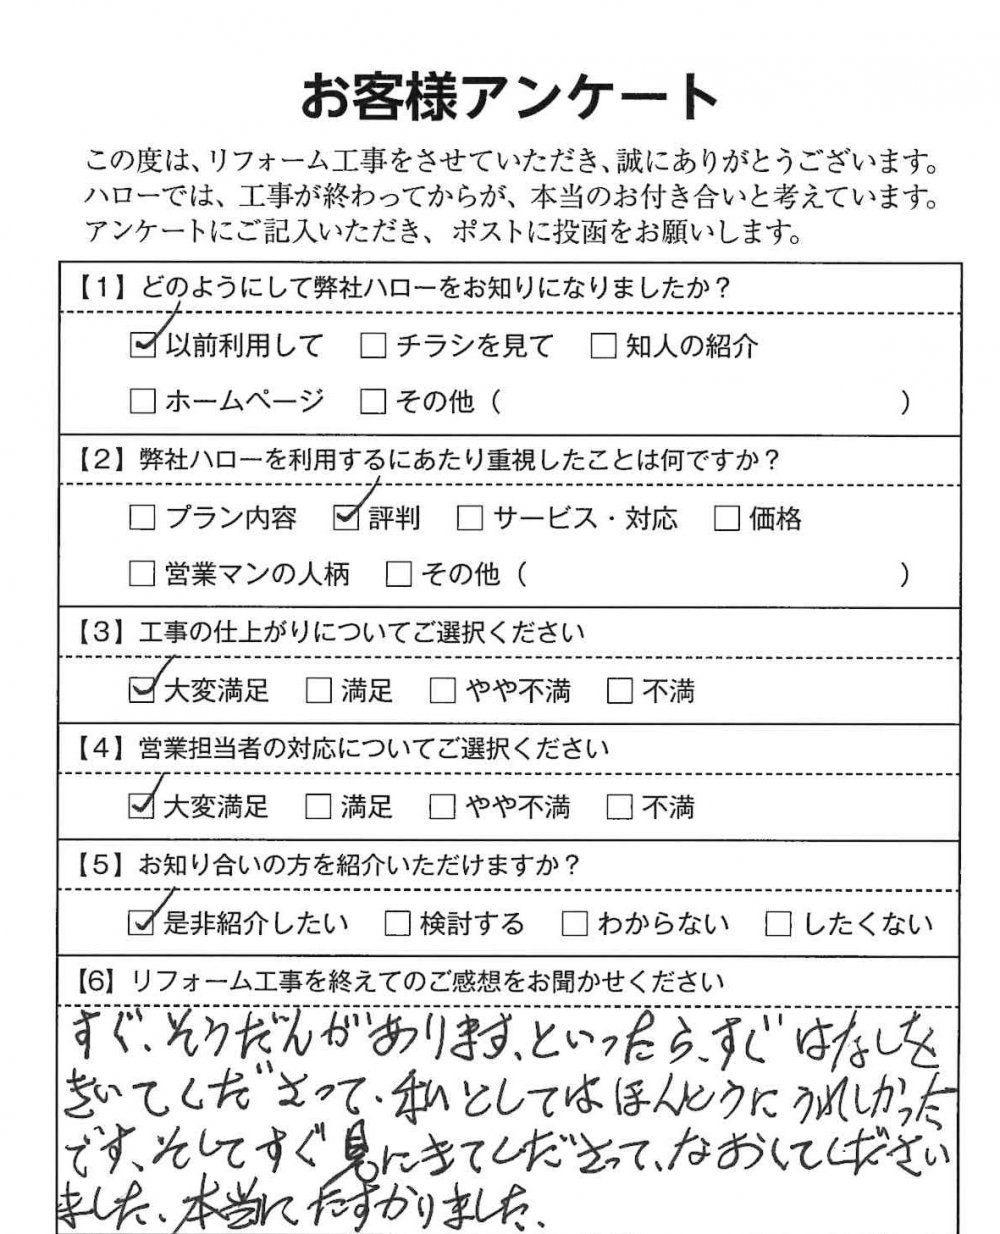 お客様アンケート
この度は、リフォーム工事をさせていただき、誠にありがとうございます。
ハローでは、工事が終わってからが、本当のお付き合いと考えています。
アンケートにご記入いただき、ポストに投函をお願いします。
【1】どのようにして弊社ハローをお知りになりましたか？
☑以前利用して □チラシを見て □知人の紹介
□ホームページ □その他（ ）
【2】弊社ハローを利用するにあたり重視したことは何ですか？
□プラン内容 ☑評判 □サービス・対応 □価格
□営業マンの人柄 □その他（ ）
【3】工事の仕上がりについてご選択ください
☑大変満足 □満足 □やや不満 □不満
【4】営業担当者の対応についてご選択ください
☑大変満足 □満足 □やや不満 □不満
【5】お知り合いの方を紹介いただけますか？
☑是非紹介したい □検討する □わからない □したくない
【6】リフォーム工事を終えてのご感想をお聞かせください
すぐ、そうだんがあります、といったら、すぐはなしを
きいてくださって、私としてはほんとうにうれしかった
です、そしてすぐ見にきてくださって、なおしてください
ました、本当にたすかりました、